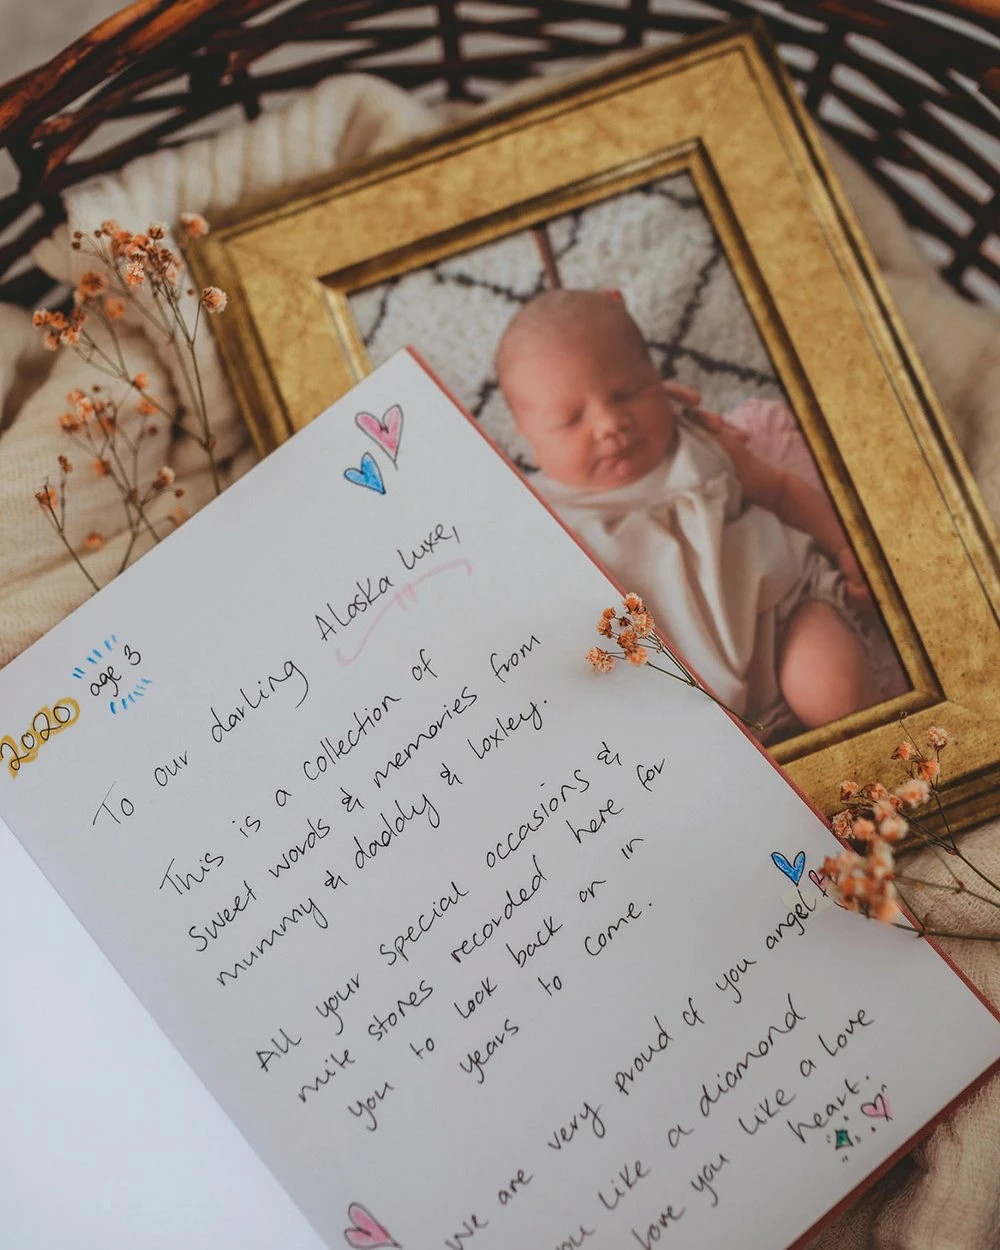 2020 "age 3"
To our darling Alaska Luxe,
This is a collection of
sweet words & memories from
mummy & daddy & Loxley.
All your special occasions &
mile stones recorded here for
you to look back on in
years to come.
We are very proud of you angel
you like a diamond
love you like a love
heart.